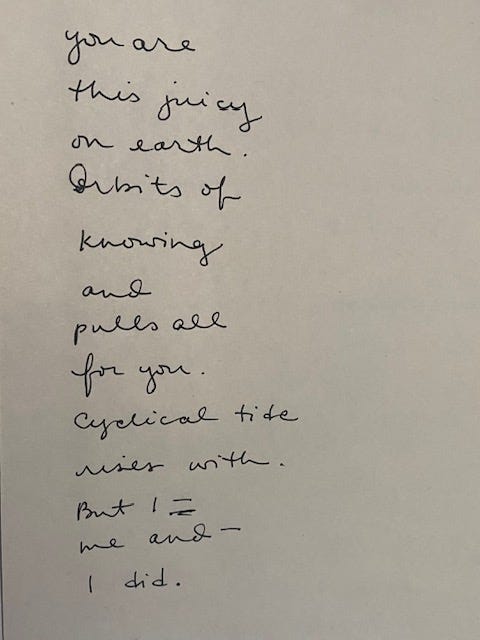 you are
this juicy
on earth.
Orbits of
knowing
and
pulls all
for you.
Cyclical tide
rises with.
But I =
me and –
I did.